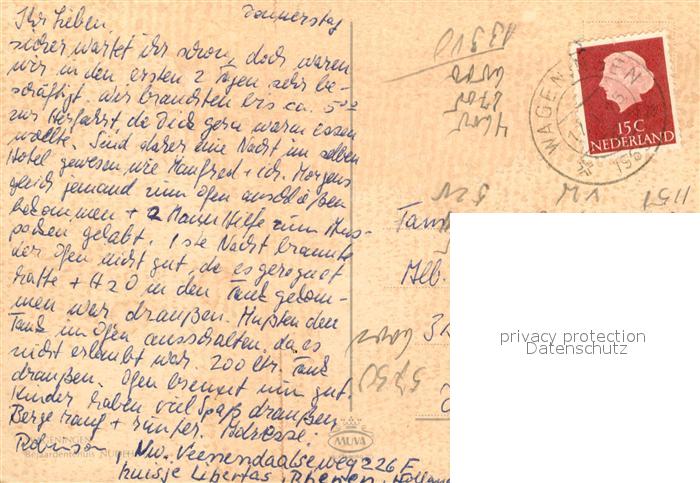 Donnerstag
Ihr Lieben
sicher wartet ihr schon, doch waren
wir in den ersten 2 Tagen sehr be-
schäftigt. Wir brauchten bis ca. 5⁰⁰
zur Herfahrt, da Dick gern warm essen
wollte. Sind daher eine Nacht im selben
Hotel gewesen, wie Manfred + ich. Morgens
gleich jemand zum Ofen anschließen
bekommen + 2 Mann Hilfe zum Aus-
packen gehabt. 1ste Nacht brannte
der Ofen nicht gut, da es geregnet
hatte + H2O in den Tank gekom-
men war draußen. Mußten den
Tank im Ofen ausschalten, da es
nicht erlaubt war. 200 ltr. Tank
draußen. Ofen brennt nun gut.
Kinder haben viel Spaß draußen,
Berge rauf + runter. Adresse:
Robinson, Nw. Veenendaalseweg 226 F
huisje Libertas, Rhenen, Holland
WAGENINGEN
Bejaardentehuis
MUVA
15C
NEDERLAND
WAGENINGEN
Fam
Alb.
3
privacy protection
Datenschutz